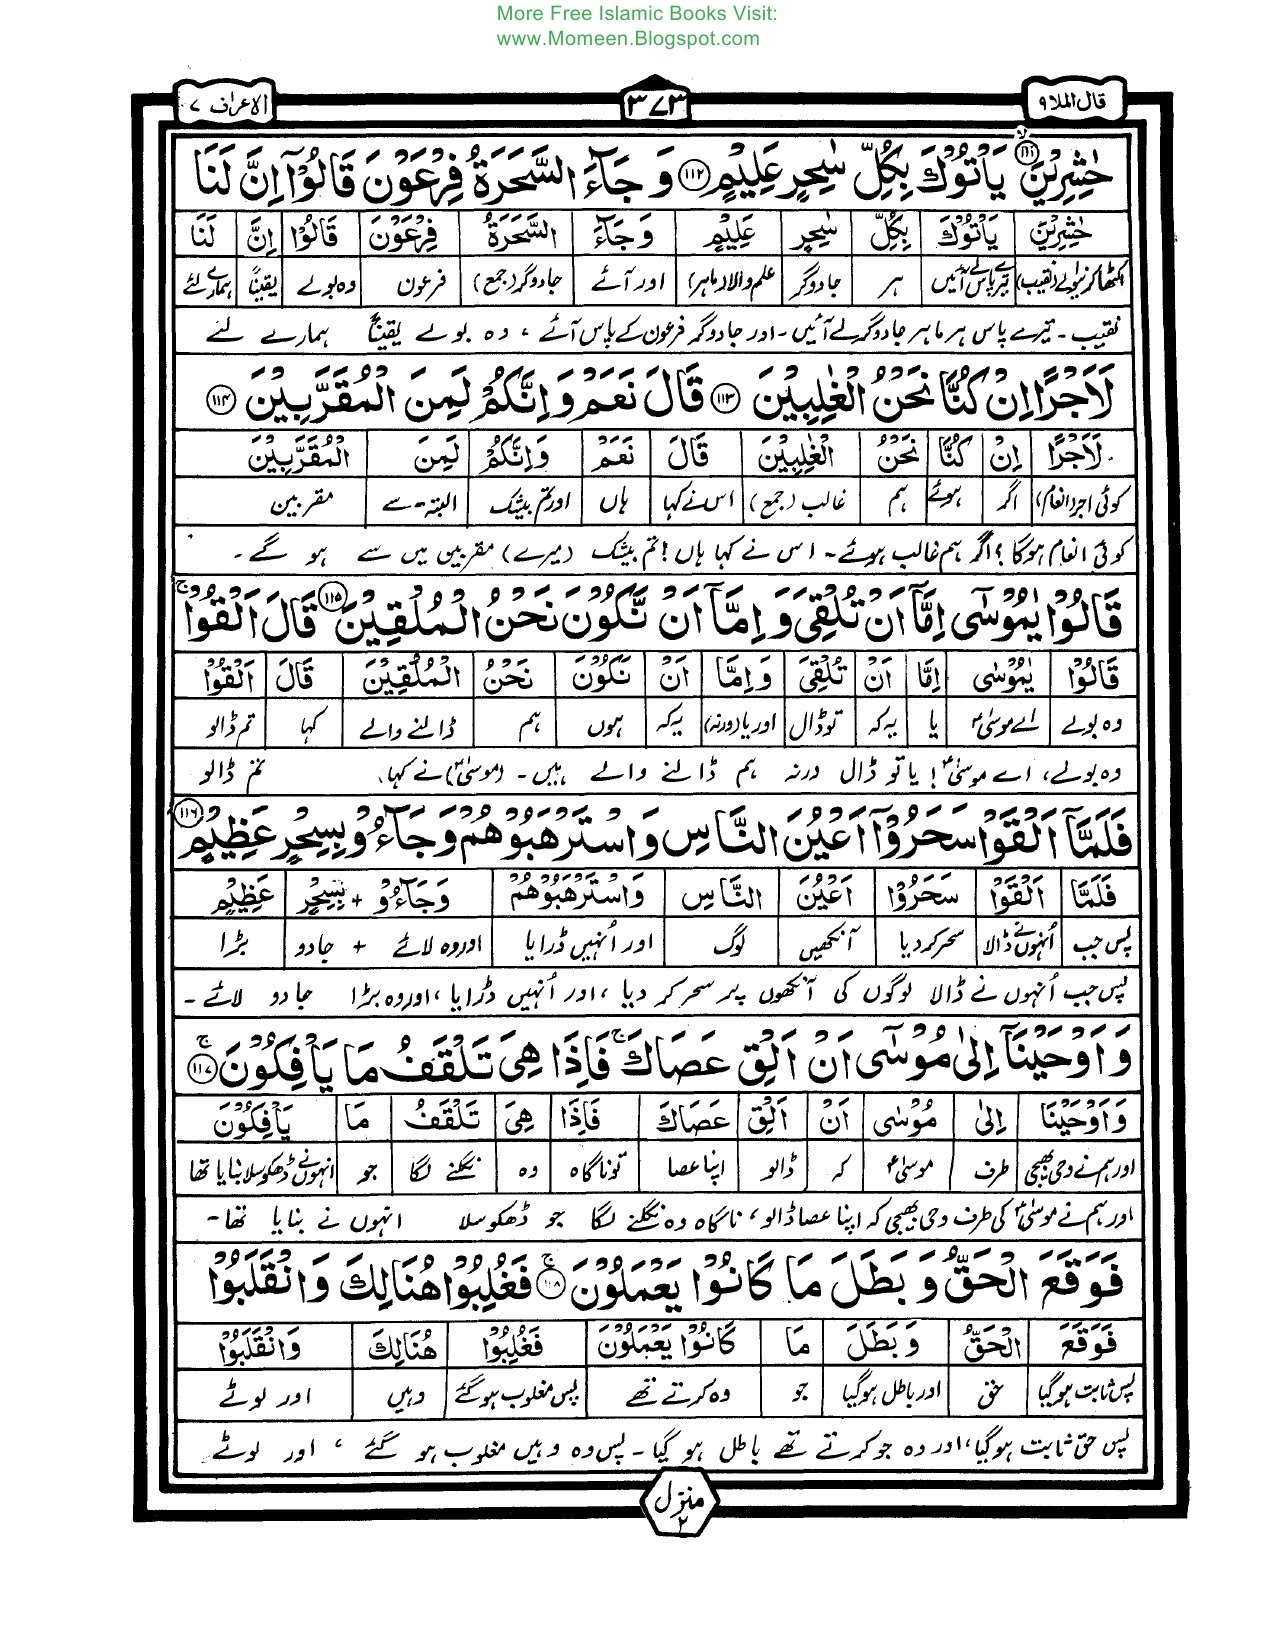 More Free Islamic Books Visit:
www.Momeen.Blogspot.com
قال الملا ۹
۳۷۳
الاعراف ۷
حٰشِرِیْنَ ۱۱۱ یَاْتُوْكَ بِكُلِّ سٰحِرٍ عَلِیْمٍ ۱۱۲ وَ جَآءَ السَّحَرَةُ فِرْعَوْنَ قَالُوْۤا اِنَّ لَنَا
حٰشِرِیْنَ یَاْتُوْكَ بِكُلِّ سٰحِرٍ عَلِیْمٍ وَ جَآءَ السَّحَرَةُ فِرْعَوْنَ قَالُوْۤا اِنَّ لَنَا
اکٹھا کرنیوالے (نقیب) تیرے پاس لے آئیں ہر جادوگر علم والا (ماہر) اور آئے جادوگر (جمع) فرعون وہ بولے یقیناً ہمارے لئے
نقیب۔ تیرے پاس ہر ماہر جادوگر لے آئیں۔ اور جادوگر فرعون کے پاس آئے، وہ بولے یقیناً ہمارے لئے
لَاَجْرًا اِنْ كُنَّا نَحْنُ الْغٰلِبِیْنَ ۱۱۳ قَالَ نَعَمْ وَ اِنَّكُمْ لَمِنَ الْمُقَرَّبِیْنَ ۱۱۴
لَاَجْرًا اِنْ كُنَّا نَحْنُ الْغٰلِبِیْنَ قَالَ نَعَمْ وَ اِنَّكُمْ لَمِنَ الْمُقَرَّبِیْنَ
کوئی اجر (انعام) اگر ہوئے ہم غالب (جمع) اس نے کہا ہاں اور تم بیشک البتہ۔ سے مقربین
کوئی انعام ہوگا؟ اگر ہم غالب ہوئے۔ اس نے کہا ہاں! تم بیشک (میرے) مقربین میں سے ہو گے۔
قَالُوْا یٰمُوْسٰۤى اِمَّاۤ اَنْ تُلْقِیَ وَ اِمَّاۤ اَنْ نَّكُوْنَ نَحْنُ الْمُلْقِیْنَ ۱۱۵ قَالَ اَلْقُوْا ۚ
قَالُوْا یٰمُوْسٰى اِمَّا اَنْ تُلْقِیَ وَ اِمَّا اَنْ نَكُوْنَ نَحْنُ الْمُلْقِیْنَ قَالَ اَلْقُوْا
وہ بولے اے موسیٰؑ یا یہ کہ تو ڈال اور یا (ورنہ) یہ کہ ہوں ہم ڈالنے والے کہا تم ڈالو
وہ بولے، اے موسیٰؑ! یا تو ڈال ورنہ ہم ڈالنے والے ہیں۔ (موسیٰؑ) نے کہا، تم ڈالو
فَلَمَّاۤ اَلْقَوْا سَحَرُوْۤا اَعْیُنَ النَّاسِ وَ اسْتَرْهَبُوْهُمْ وَ جَآءُوْ بِسِحْرٍ عَظِیْمٍ ۱۱۶
فَلَمَّا اَلْقَوْا سَحَرُوْا اَعْیُنَ النَّاسِ وَ اسْتَرْهَبُوْهُمْ وَ جَآءُوْ + بِسِحْرٍ عَظِیْمٍ
پس جب اُنہوں نے ڈالا سحر کر دیا آنکھیں لوگ اور اُنہیں ڈرایا اور وہ لائے + جادو بڑا
پس جب اُنہوں نے ڈالا لوگوں کی آنکھوں پر سحر کر دیا، اور اُنہیں ڈرایا، اور وہ بڑا جادو لائے۔
وَ اَوْحَیْنَاۤ اِلٰى مُوْسٰۤى اَنْ اَلْقِ عَصَاكَ ۚ فَاِذَا هِیَ تَلْقَفُ مَا یَاْفِكُوْنَ ۚ ۱۱۷
وَ اَوْحَیْنَا اِلٰى مُوْسٰى اَنْ اَلْقِ عَصَاكَ فَاِذَا هِیَ تَلْقَفُ مَا یَاْفِكُوْنَ
اور ہم نے وحی بھیجی طرف موسیٰؑ کہ ڈالو اپنا عصا تو ناگاہ وہ نگلنے لگا جو انہوں نے ڈھکوسلا بنایا تھا
اور ہم نے موسیٰؑ کی طرف وحی بھیجی کہ اپنا عصا ڈالو، ناگاہ وہ نگلنے لگا جو ڈھکوسلا انہوں نے بنایا تھا۔
فَوَقَعَ الْحَقُّ وَ بَطَلَ مَا كَانُوْا یَعْمَلُوْنَ ۚ ۱۱۸ فَغُلِبُوْا هُنَالِكَ وَ انْقَلَبُوْا
فَوَقَعَ الْحَقُّ وَ بَطَلَ مَا كَانُوْا یَعْمَلُوْنَ فَغُلِبُوْا هُنَالِكَ وَ انْقَلَبُوْا
پس ثابت ہوگیا حق اور باطل ہوگیا جو وہ کرتے تھے پس مغلوب ہوگئے وہیں اور لوٹے
پس حق ثابت ہوگیا، اور وہ جو کرتے تھے باطل ہو گیا۔ پس وہ وہیں مغلوب ہو گئے، اور لوٹے
منزل ۲